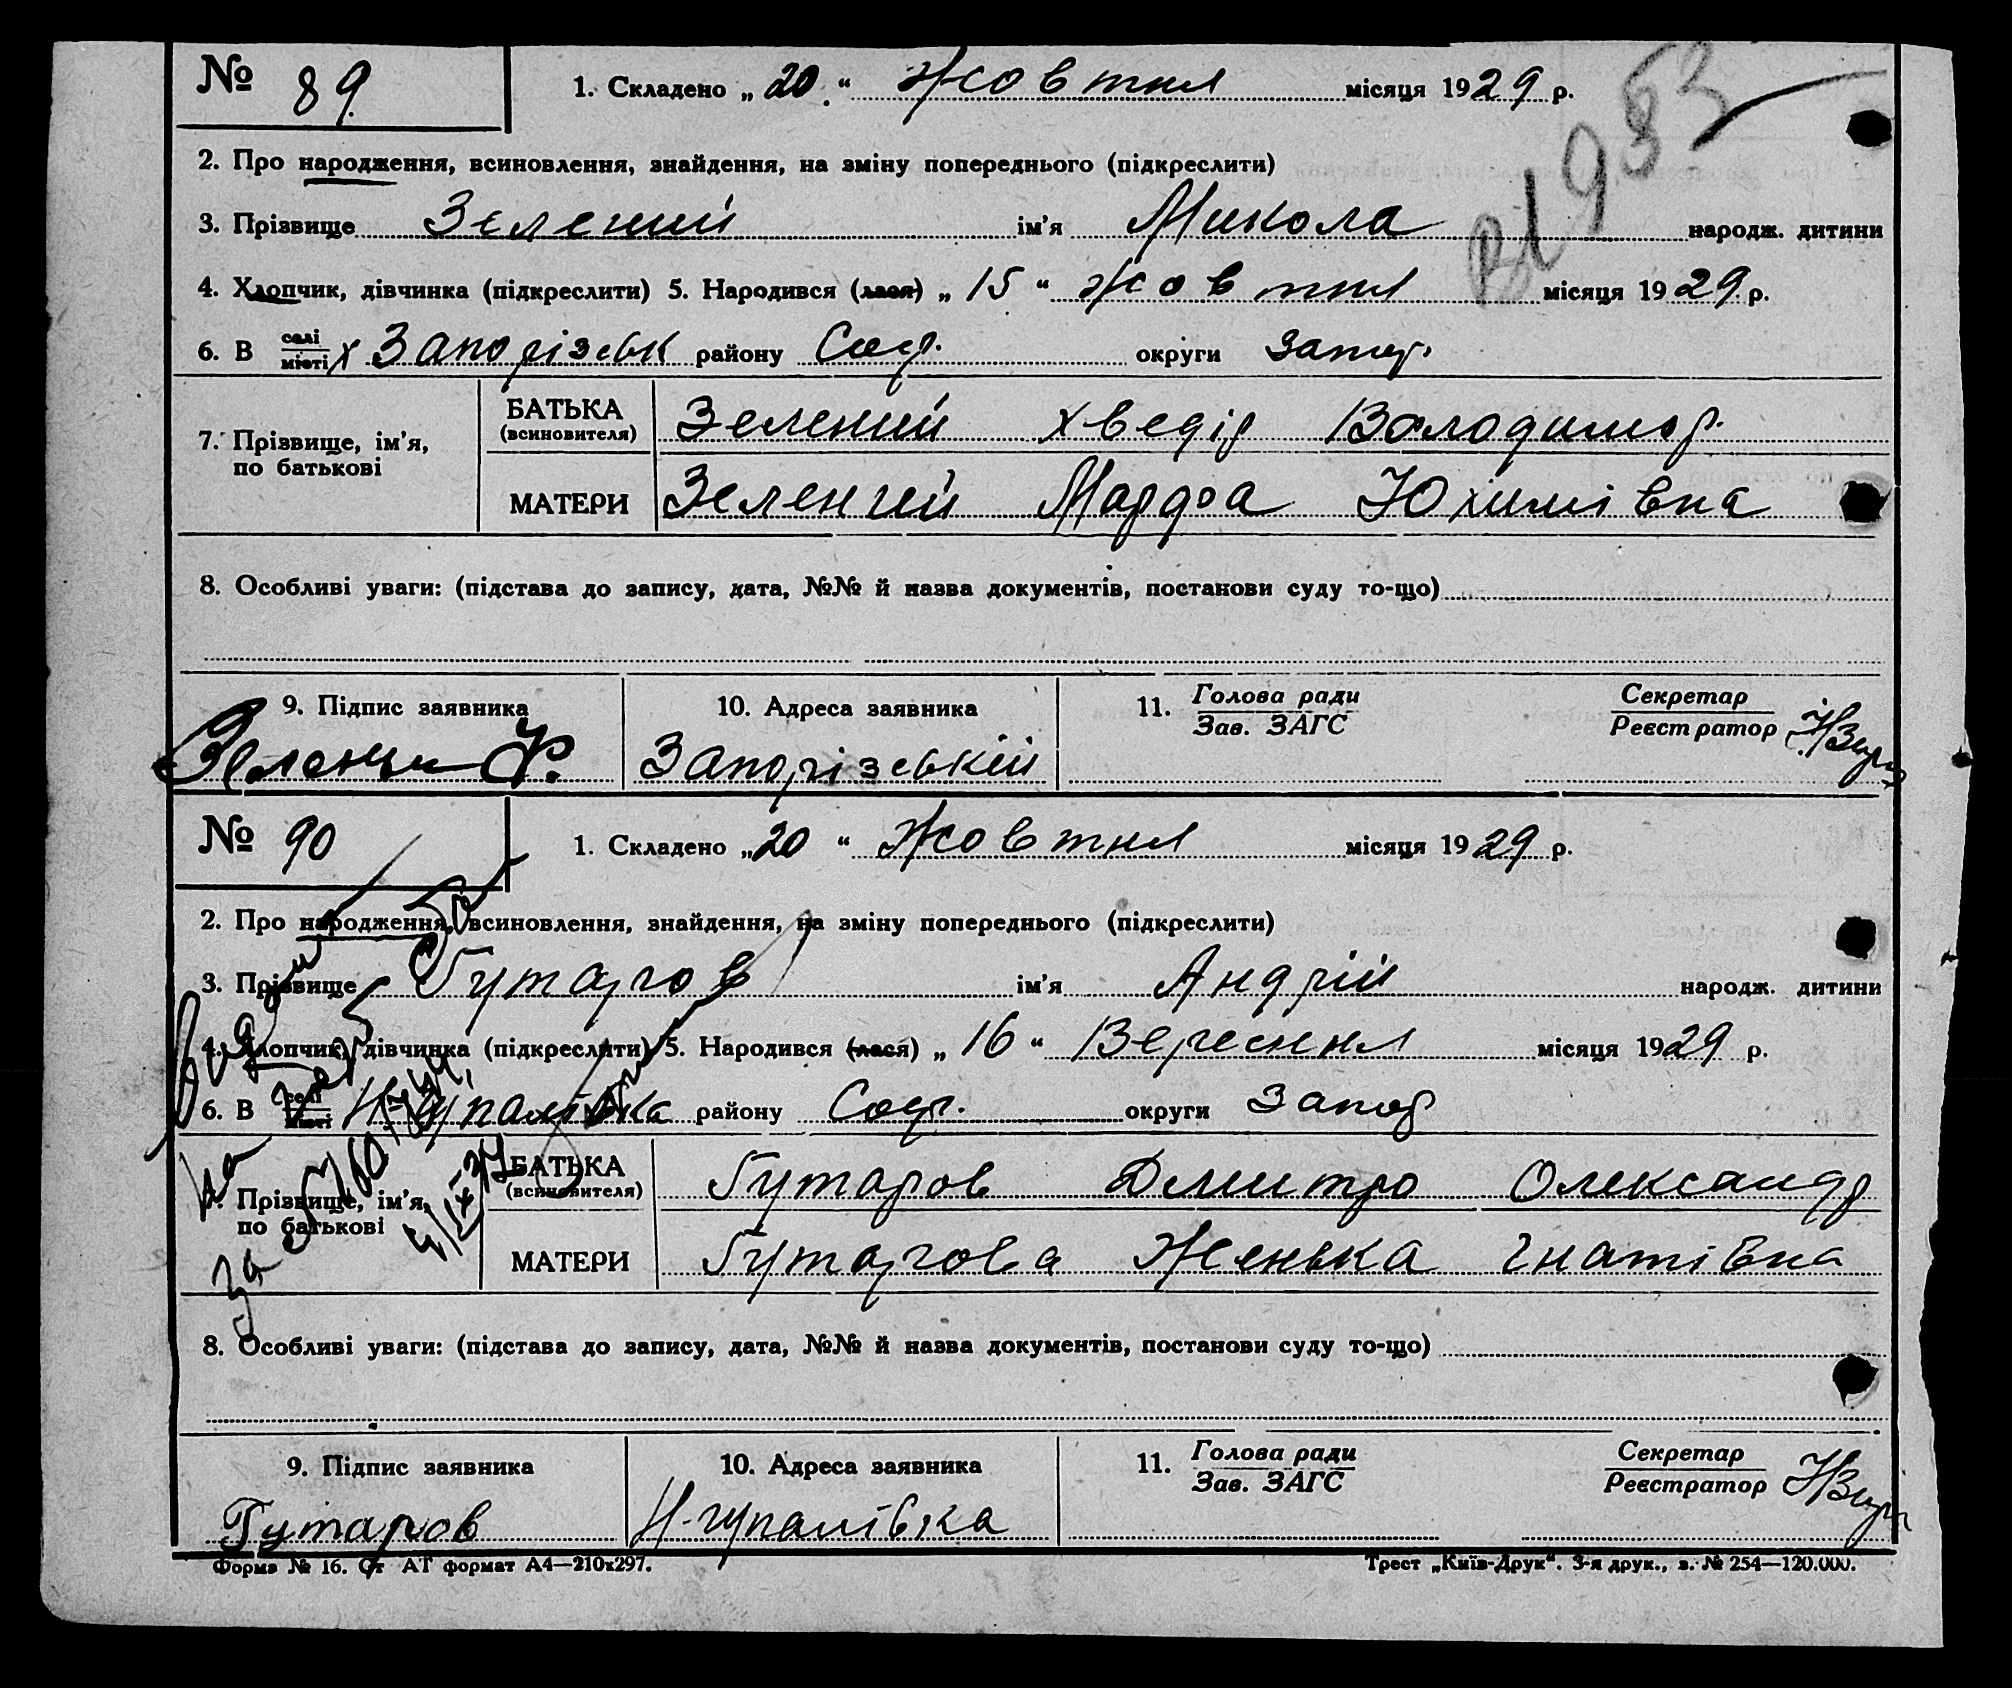 № 89. 1. Складено „20.“ Жовтня місяця 1929 р.
2. Про народження, всиновлення, знайдення, на зміну попереднього (підкреслити)
3. Прізвище Зелений ім’я Микола народж. дитини
4. Хлопчик, дівчинка (підкреслити) 5. Народився (лася) „15“ Жовтня місяця 1929 р.
6. В селі/місті х Запорізськ району Соф. округи Запор.
7. Прізвище, ім’я, по батькові
БАТЬКА (всиновителя) Зелений Хведір Володимор.
МАТЕРИ Зеленчий Мардфа Юхимівна
8. Особливі уваги: (підстава до запису, дата, №№ й назва документів, постанови суду то-що)
9. Підпис заявника 10. Адреса заявника 11. Голова ради Секретар
Зав. ЗАГС Реєстратор
Запорізській
№ 90 1. Складено „20“ Жовтня місяця 1929 р.
2. Про народження, всиновлення, знайдення, на зміну попереднього (підкреслити)
3. Прізвище Гутаров ім’я Андрій народж. дитини
4. Хлопчик, дівчинка (підкреслити) 5. Народився (лася) „16“ Вересння місяця 1929 р.
6. В селі/місті Н-гупалівка району Соф. округи Запор
7. Прізвище, ім’я, по батькові
БАТЬКА (всиновителя) Гутаров Дмитро Олександр
МАТЕРИ Гутарова Женька Гнатівна
8. Особливі уваги: (підстава до запису, дата, №№ й назва документів, постанови суду то-що)
9. Підпис заявника 10. Адреса заявника 11. Голова ради Секретар
Зав. ЗАГС Реєстратор
Гутаров Н-гупалівка
Форма № 16. Ст АТ формат А4—210х297. Трест „Київ-Друк“. 3-я друк., з. № 254—120.000.